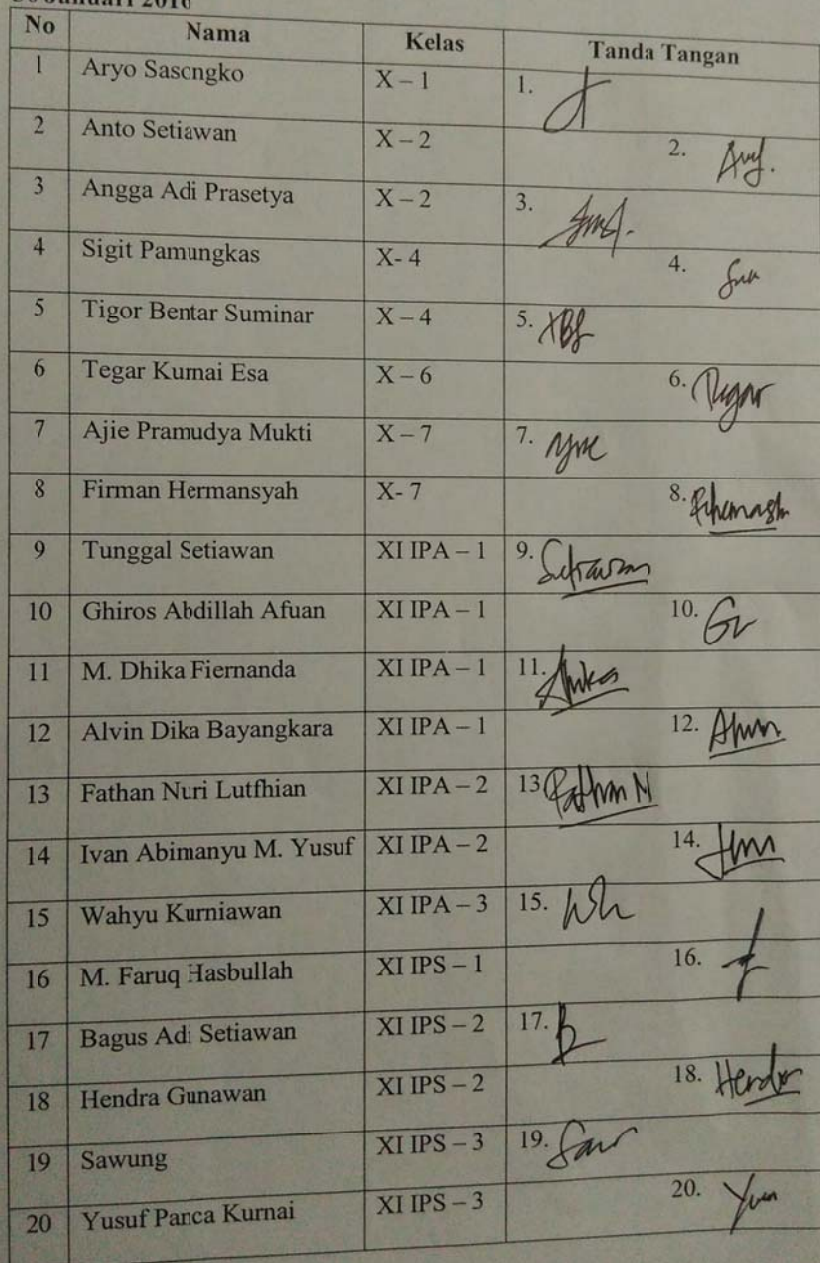 Januari 2016
No Nama Kelas Tanda Tangan
1 Aryo Sasongko X – 1 1.
2 Anto Setiawan X – 2 2.
3 Angga Adi Prasetya X – 2 3.
4 Sigit Pamungkas X- 4 4.
5 Tigor Bentar Suminar X – 4 5.
6 Tegar Kurnai Esa X – 6 6. Tegar
7 Ajie Pramudya Mukti X – 7 7.
8 Firman Hermansyah X- 7 8.
9 Tunggal Setiawan XI IPA – 1 9. Setiawan
10 Ghiros Abdillah Afuan XI IPA – 1 10.
11 M. Dhika Fiernanda XI IPA – 1 11.
12 Alvin Dika Bayangkara XI IPA – 1 12.
13 Fathan Nuri Lutfhian XI IPA – 2 13 Fathan N
14 Ivan Abimanyu M. Yusuf XI IPA – 2 14.
15 Wahyu Kurniawan XI IPA – 3 15.
16 M. Faruq Hasbullah XI IPS – 1 16.
17 Bagus Adi Setiawan XI IPS – 2 17.
18 Hendra Gunawan XI IPS – 2 18. Hendra
19 Sawung XI IPS – 3 19.
20 Yusuf Panca Kurnai XI IPS – 3 20.